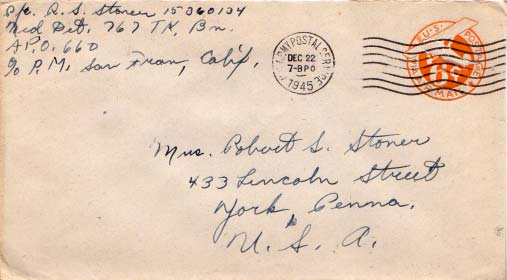 Pfc. R. S. Stoner 15360134
Med Det. 767 TK, Bn.
A.P.O. 660
c/o P.M. San Fran, Calif.
ARMY POSTAL SER
DEC 22
7-BPO
1945
U.S. POSTAGE
6¢
VIA AIR MAIL
Mrs. Robert S. Stoner
433 Lincoln Street
York, Penna.
U. S. A.